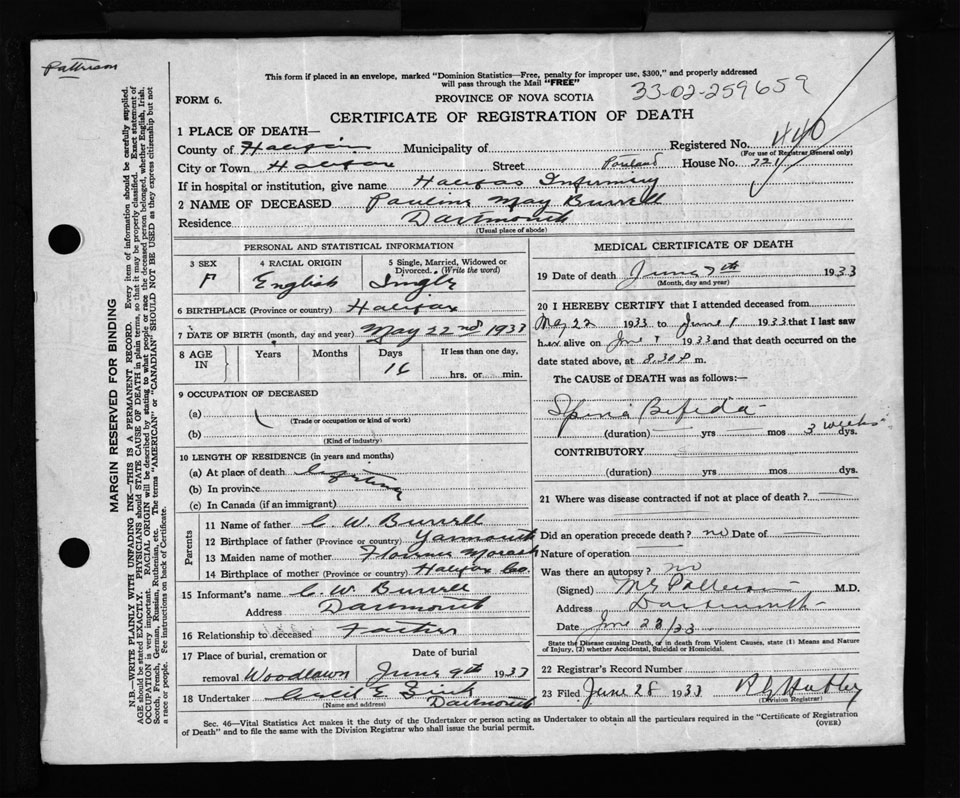 Pattison
This form if placed in an envelope, marked "Dominion Statistics—Free, penalty for improper use, $300," and properly addressed
will pass through the Mail "FREE"
33-02-259659
FORM 6.
PROVINCE OF NOVA SCOTIA
CERTIFICATE OF REGISTRATION OF DEATH
1 PLACE OF DEATH—
Registered No. 440
County of Halifax Municipality of
(For use of Registrar General only)
City or Town Halifax Street Portland House No. 221
If in hospital or institution, give name Halifax Infirmary
2 NAME OF DECEASED Pauline May Burrell
Residence Dartmouth
(Usual place of abode)
PERSONAL AND STATISTICAL INFORMATION
3 SEX 4 RACIAL ORIGIN 5 Single, Married, Widowed or
Divorced. (Write the word)
F English Single
6 BIRTHPLACE (Province or country) Halifax
7 DATE OF BIRTH (month, day and year) May 22nd 1933
8 AGE IN Years Months Days If less than one day,
16
hrs. or min.
9 OCCUPATION OF DECEASED
(a)
(Trade or occupation or kind of work)
(b)
(Kind of industry)
10 LENGTH OF RESIDENCE (in years and months)
(a) At place of death
(b) In province
(c) In Canada (if an immigrant)
Parents
11 Name of father C. W. Burrell
12 Birthplace of father (Province or country) Yarmouth
13 Maiden name of mother Florence Morash
14 Birthplace of mother (Province or country) Halifax Co.
15 Informant's name C. W. Burrell
Address Dartmouth
16 Relationship to deceased Father
17 Place of burial, cremation or Date of burial
removal Woodlawn June 9th 1933
18 Undertaker Cecil E
(Name and address) Dartmouth
MEDICAL CERTIFICATE OF DEATH
19 Date of death June 7th 1933
(Month, day and year)
20 I HEREBY CERTIFY that I attended deceased from
May 22 1933 to June 1933 that I last saw
her alive on June 1933 and that death occurred on the
date stated above, at 8.30 P m.
The CAUSE OF DEATH was as follows:—
Spina Bifida
(duration) yrs mos 3 weeks dys.
CONTRIBUTORY
(duration) yrs mos dys.
21 Where was disease contracted if not at place of death?
Did an operation precede death? no Date of
Nature of operation
Was there an autopsy? no
(Signed) M.D.
Address Dartmouth
Date June 28/33
State the Disease causing Death, or in death from Violent Causes, state (1) Means and Nature
of Injury, (2) whether Accidental, Suicidal or Homicidal.
22 Registrar's Record Number
23 Filed June 28 1933
(Division Registrar)
Sec. 46—Vital Statistics Act makes it the duty of the Undertaker or person acting as Undertaker to obtain all the particulars required in the "Certificate of Registration
of Death" and to file the same with the Division Registrar who shall issue the burial permit. (OVER)
MARGIN RESERVED FOR BINDING
N.B.—WRITE PLAINLY, WITH UNFADING INK—THIS IS A PERMANENT RECORD. Every item of information should be carefully supplied.
AGE should be stated EXACTLY. PHYSICIANS should STATE CAUSE OF DEATH in plain terms, so that it may be properly classified. Exact statement of
OCCUPATION is very important. RACIAL ORIGIN will be described by stating to what people or race the deceased person belonged, whether English, Irish,
Scotch, French, German, Russian, Ruthenian, etc. The terms "AMERICAN" or "CANADIAN" SHOULD NOT BE USED as they express citizenship but not
a race or people. Fee instructions on back of Certificate.